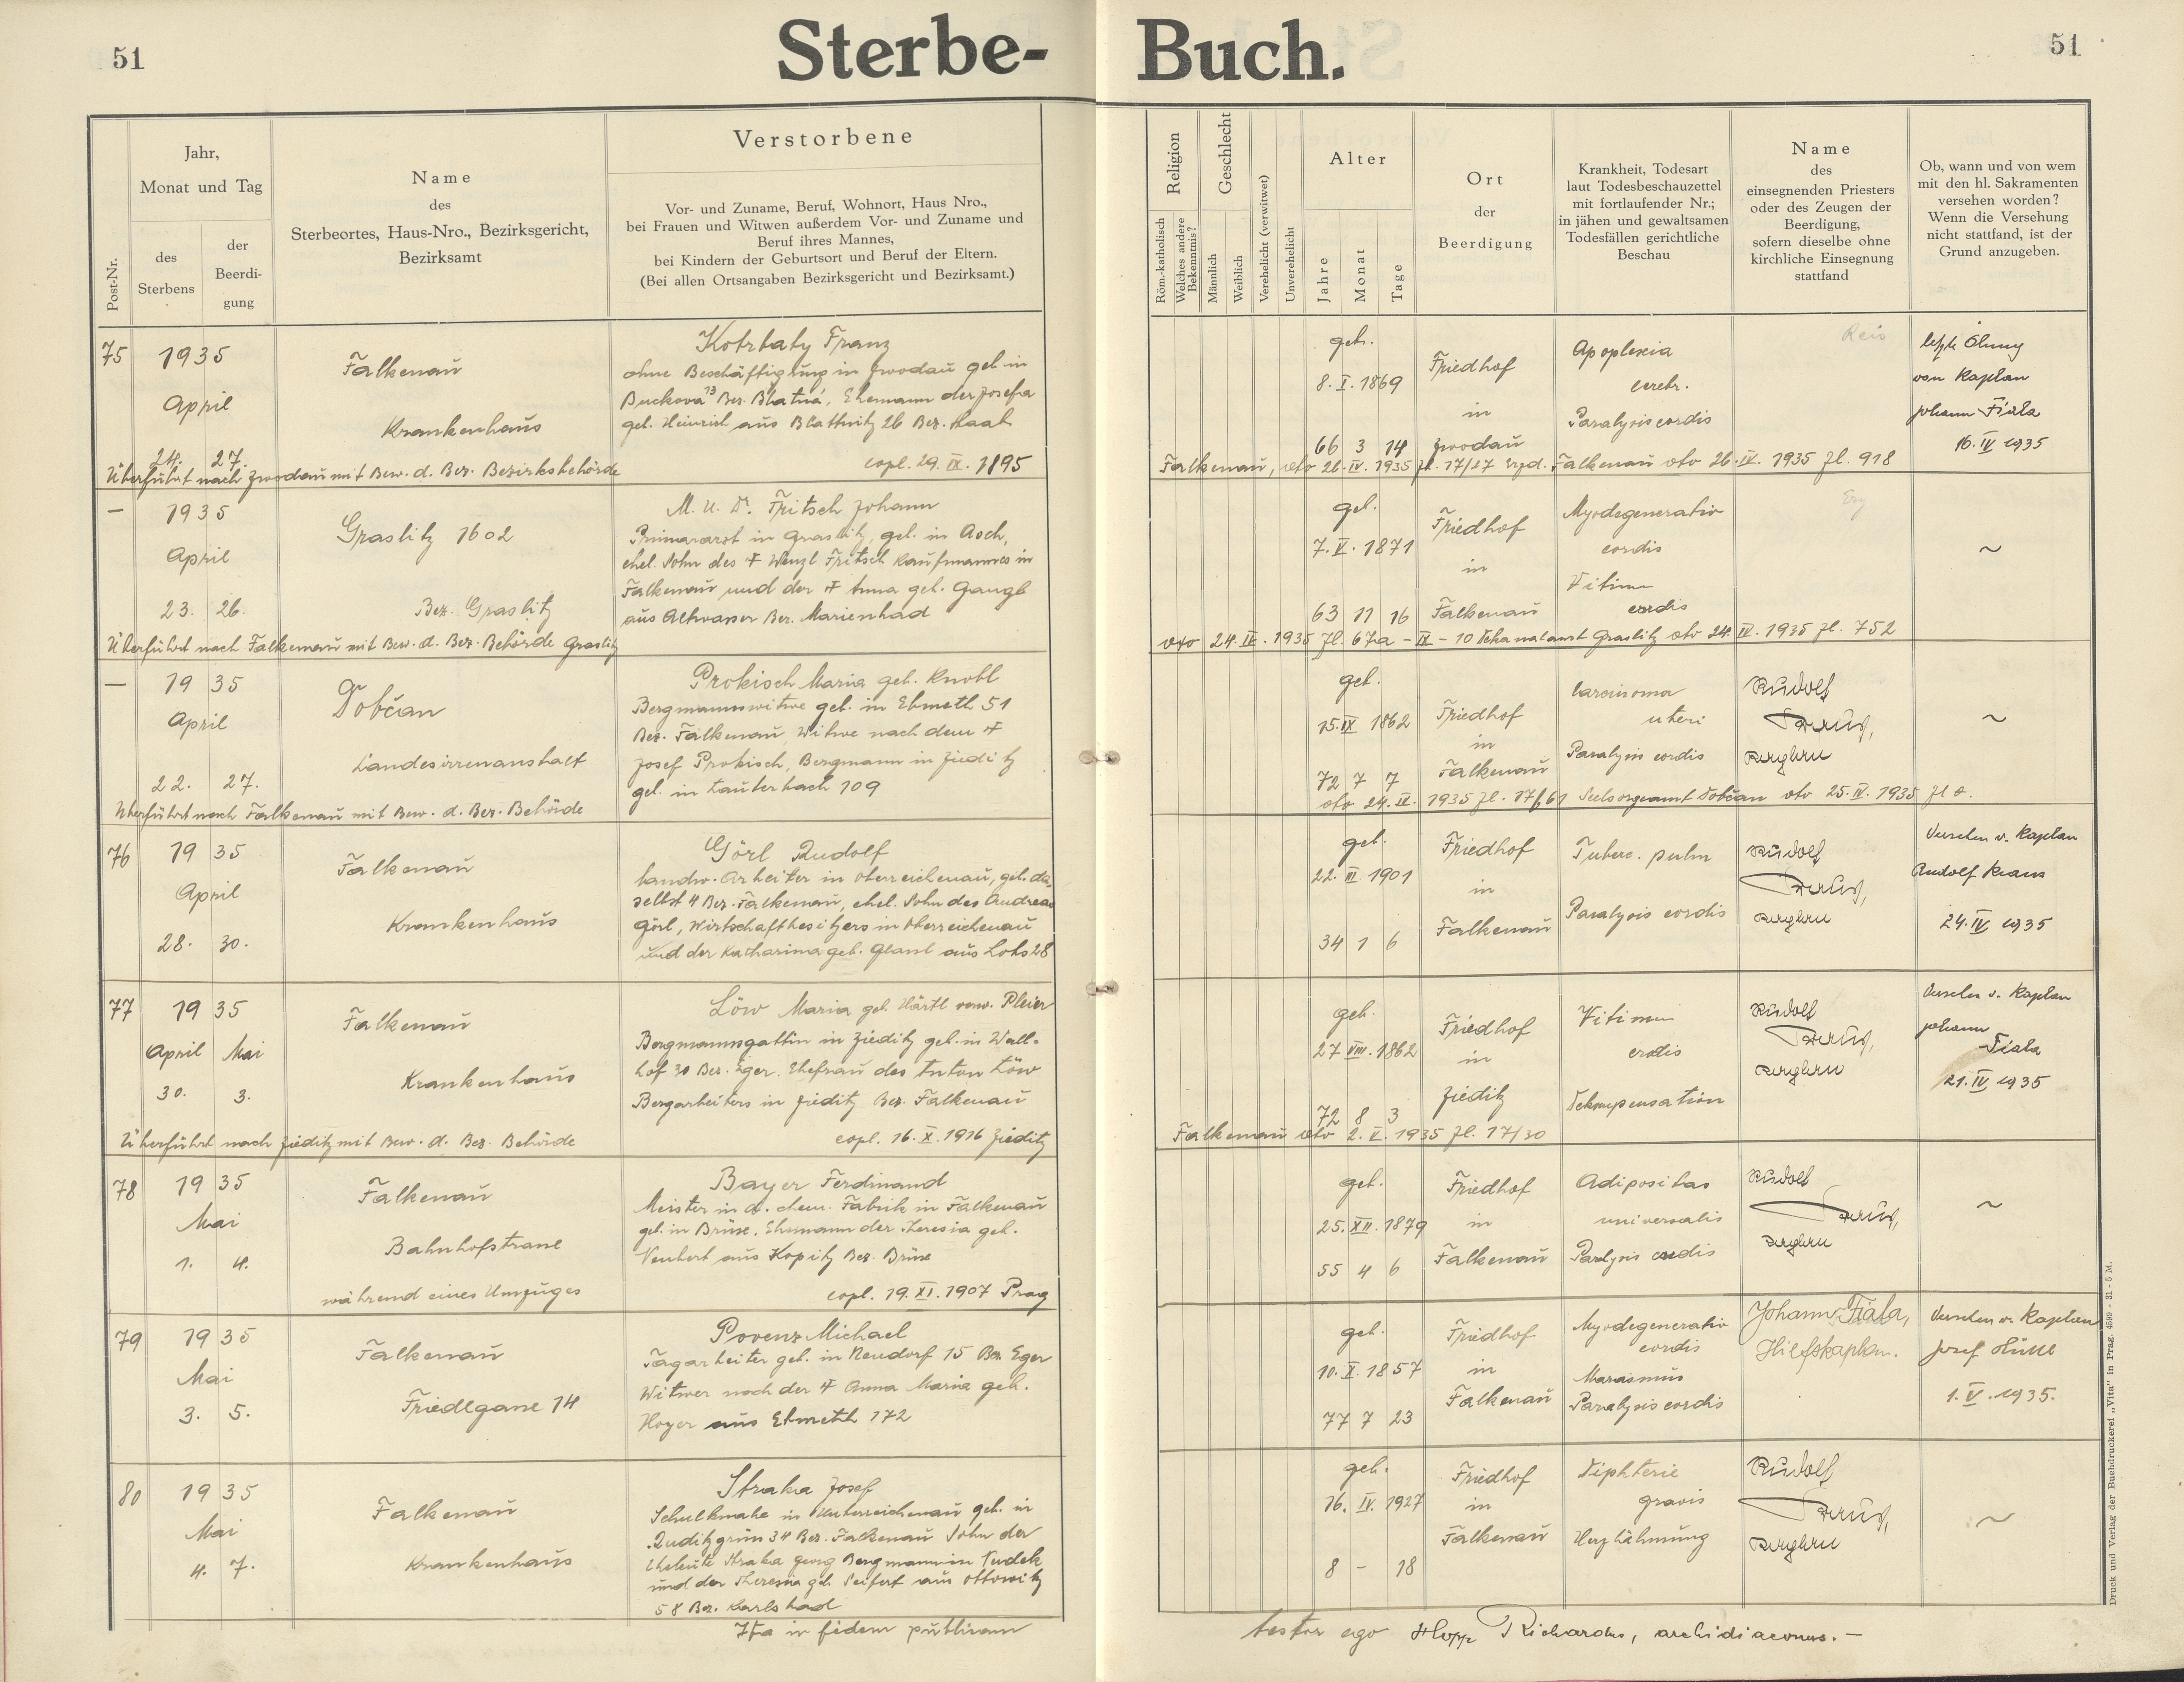 51
Sterbe- Buch.
51
Post-Nr.
Jahr,
Monat und Tag
des
Sterbens
der
Beerdi-
gung
Name
des
Sterbeortes, Haus-Nro., Bezirksgericht,
Bezirksamt
Verstorbene
Vor- und Zuname, Beruf, Wohnort, Haus Nro.,
bei Frauen und Witwen außerdem Vor- und Zuname und
Beruf ihres Mannes,
bei Kindern der Geburtsort und Beruf der Eltern.
(Bei allen Ortsangaben Bezirksgericht und Bezirksamt.)
Religion
Röm.-katholisch
Welches andere
Bekenntnis?
Geschlecht
Männlich
Weiblich
Verehelicht (verwitwet)
Unverehelicht
Alter
Jahre
Monat
Tage
Ort
der
Beerdigung
Krankheit, Todesart
laut Todesbeschauzettel
mit fortlaufender Nr.;
in jähen und gewaltsamen
Todesfällen gerichtliche
Beschau
Name
des
einsegnenden Priesters
oder des Zeugen der
Beerdigung,
sofern dieselbe ohne
kirchliche Einsegnung
stattfand
Ob, wann und von wem
mit den hl. Sakramenten
versehen worden?
Wenn die Versehung
nicht stattfand, ist der
Grund anzugeben.
75
1935
April
24. 27.
Falkenau
Krankenhaus
Kotrbaty Franz
ohne Beschäftigung in Zwodau geb in
Buckova 13 Bez. Blatná, Ehemann der Josefa
geb. Heinrich aus Blattnitz 26 Bez. Staab
copl. 29. IX. 1895
geb.
8. I. 1869
66 3 14
Friedhof
in
Zwodau
Apoplexia
cerebr.
Paralysis cordis
Reis
letzte Ölung
von Kaplan
Johann Fiala
16. IV 1935
Überführt nach Zwodau mit Bew. d. Bez. Bezirksbehörde Falkenau, dto 26. IV. 1935 Zl. 17/27 Erzd. Falkenau dto 26. IV. 1935 Zl. 918
—
1935
April
23. 26.
Graslitz 1602
Bez. Graslitz
M. U. Dr. Fritsch Johann
Primararzt in Graslitz, geb. in Asch,
ehel. Sohn des † Wenzl Fritsch Kaufmannes in
Falkenau und der † Anna geb. Gangl
aus Altwasser Bez. Marienbad
geb.
7. V. 1871
63 11 16
Friedhof
in
Falkenau
Myodegeneratio
cordis
Vitium
cordis
~
Überführt nach Falkenau mit Bew. d. Bez. Behörde Graslitz dto 24. IV. 1935 Zl. 67a - IX - 10 Dekanalamt Graslitz dto 24. IV. 1935 Zl. 752
—
1935
April
22. 27.
Dobřan
Landesirrenanstalt
Prokisch Maria geb. Knobl
Bergmannswitwe geb. in Ebmeth 51
Bez. Falkenau, Witwe nach dem †
Josef Prokisch, Bergmann in Zieditz
geb. in Lauterbach 109
geb.
15. IX 1862
72 7 7
Friedhof
in
Falkenau
Carcinoma
uteri
Paralysis cordis
Rudolf
Kraus,
~
Überführt nach Falkenau mit Bew. d. Bez. Behörde dto 24. IV. 1935 Zl. 17/61 Seelsorgeamt Dobřan dto 25. IV. 1935 Zl 0.
76
1935
April
28. 30.
Falkenau
Krankenhaus
Görl Rudolf
landw. Arbeiter in Oberreichenau, geb. da,
selbst 4 Bez. Falkenau, ehel. Sohn des Andreas
Görl, Wirtschaftbesitzers in Oberreichenau
und der Katharina geb. Glassl aus Lobs 28
geb.
22. III. 1901
34 1 6
Friedhof
in
Falkenau
Tuberc. pulm
Paralysis cordis
Rudolf
Kraus,
Versehen v. Kaplan
Rudolf Kraus
24. IV 1935
77
1935
April Mai
30. 3.
Falkenau
Krankenhaus
Löw Maria geb. Härtl verw. Pleier
Bergmannsgattin in Zieditz geb. in Wall-
hof 30 Bez. Eger. Ehefrau des Anton Löw
Bergarbeiters in Zieditz Bez. Falkenau
copl. 16. X. 1916 Zieditz
geb.
27 VIII. 1862
72 8 3
Friedhof
in
Zieditz
Vitium
cordis
Dekompensation
Rudolf
Kraus,
Versehen v. Kaplan
Johann
Fiala
21. IV 1935
Überführt nach Zieditz mit Bew. d. Bez. Behörde Falkenau dto 2. V. 1935 Zl. 17/30
78
1935
Mai
1. 4.
Falkenau
Bahnhofstrasse
während eines Umzuges
Bayer Ferdinand
Meister in d. chem. Fabrik in Falkenau
geb. in Brüx. Ehemann der Theresia geb.
Neubert aus Kopitz Bez. Brüx
copl. 19. XI. 1907 Prag
geb.
25. XII. 1879
55 4 6
Friedhof
in
Falkenau
Adipositas
universalis
Paralysis cordis
Rudolf
Kraus,
~
79
1935
Mai
3. 5.
Falkenau
Friedlgasse 14
Povenz Michael
Tagarbeiter geb. in Neudorf 15 Bez. Eger
Witwer nach der † Anna Maria geb.
Hoyer aus Ebmeth 172
geb.
10. X. 1857
77 7 23
Friedhof
in
Falkenau
Myodegeneratio
cordis
Marasmus
Paralysis cordis
Johann Fiala,
Hilfskaplan.
Versehen v. Kaplan
Josef
1. V. 1935.
80
1935
Mai
4. 7.
Falkenau
Krankenhaus
Straka Josef
Schulknabe in Unterreichenau geb. in
Ruditzgrün 34 Bez. Falkenau Sohn der
Eheleute Straka Georg Bergmann in Nudek
und der Theresia geb. Seifert aus Ottowitz
58 Bez. Karlsbad
geb.
16. IV. 1927
8 - 18
Friedhof
in
Falkenau
Diphterie
gravis
Herzlähmung
Rudolf
Kraus,
~
Ita in fidem publicam testor ego Hopp Richardus, archidiaconus. —
Druck und Verlag der Buchdruckerei „Vita" in Prag. 4599 - 31 - 5 M.